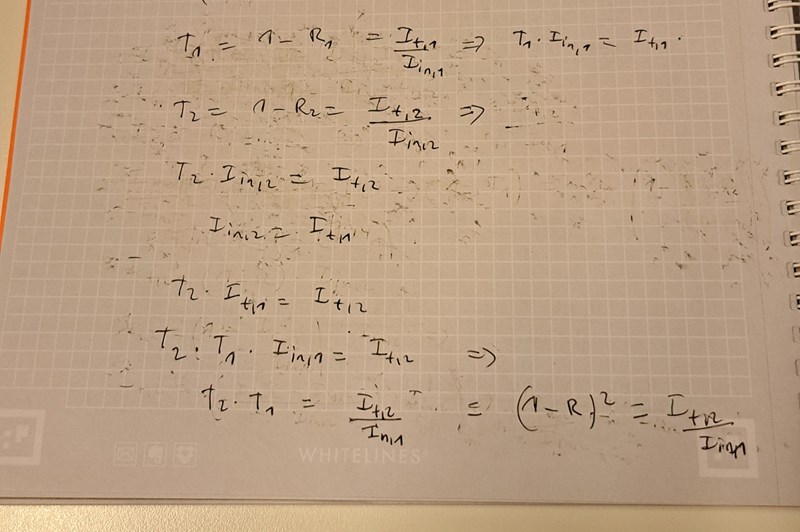 T₁ = 1 - R₁ = I_{t,1} / I_{in,1} => T₁ · I_{in,1} = I_{t,1} .
T₂ = 1 - R₂ = I_{t,2} / I_{in,2} =>
T₂ · I_{in,2} = I_{t,2}
I_{in,2} = I_{t,1}
T₂ · I_{t,1} = I_{t,2}
T₂ · T₁ · I_{in,1} = I_{t,2} =>
T₂ · T₁ = I_{t,2} / I_{in,1} = (1 - R)² = I_{t,2} / I_{in,1}
WHITELINES®